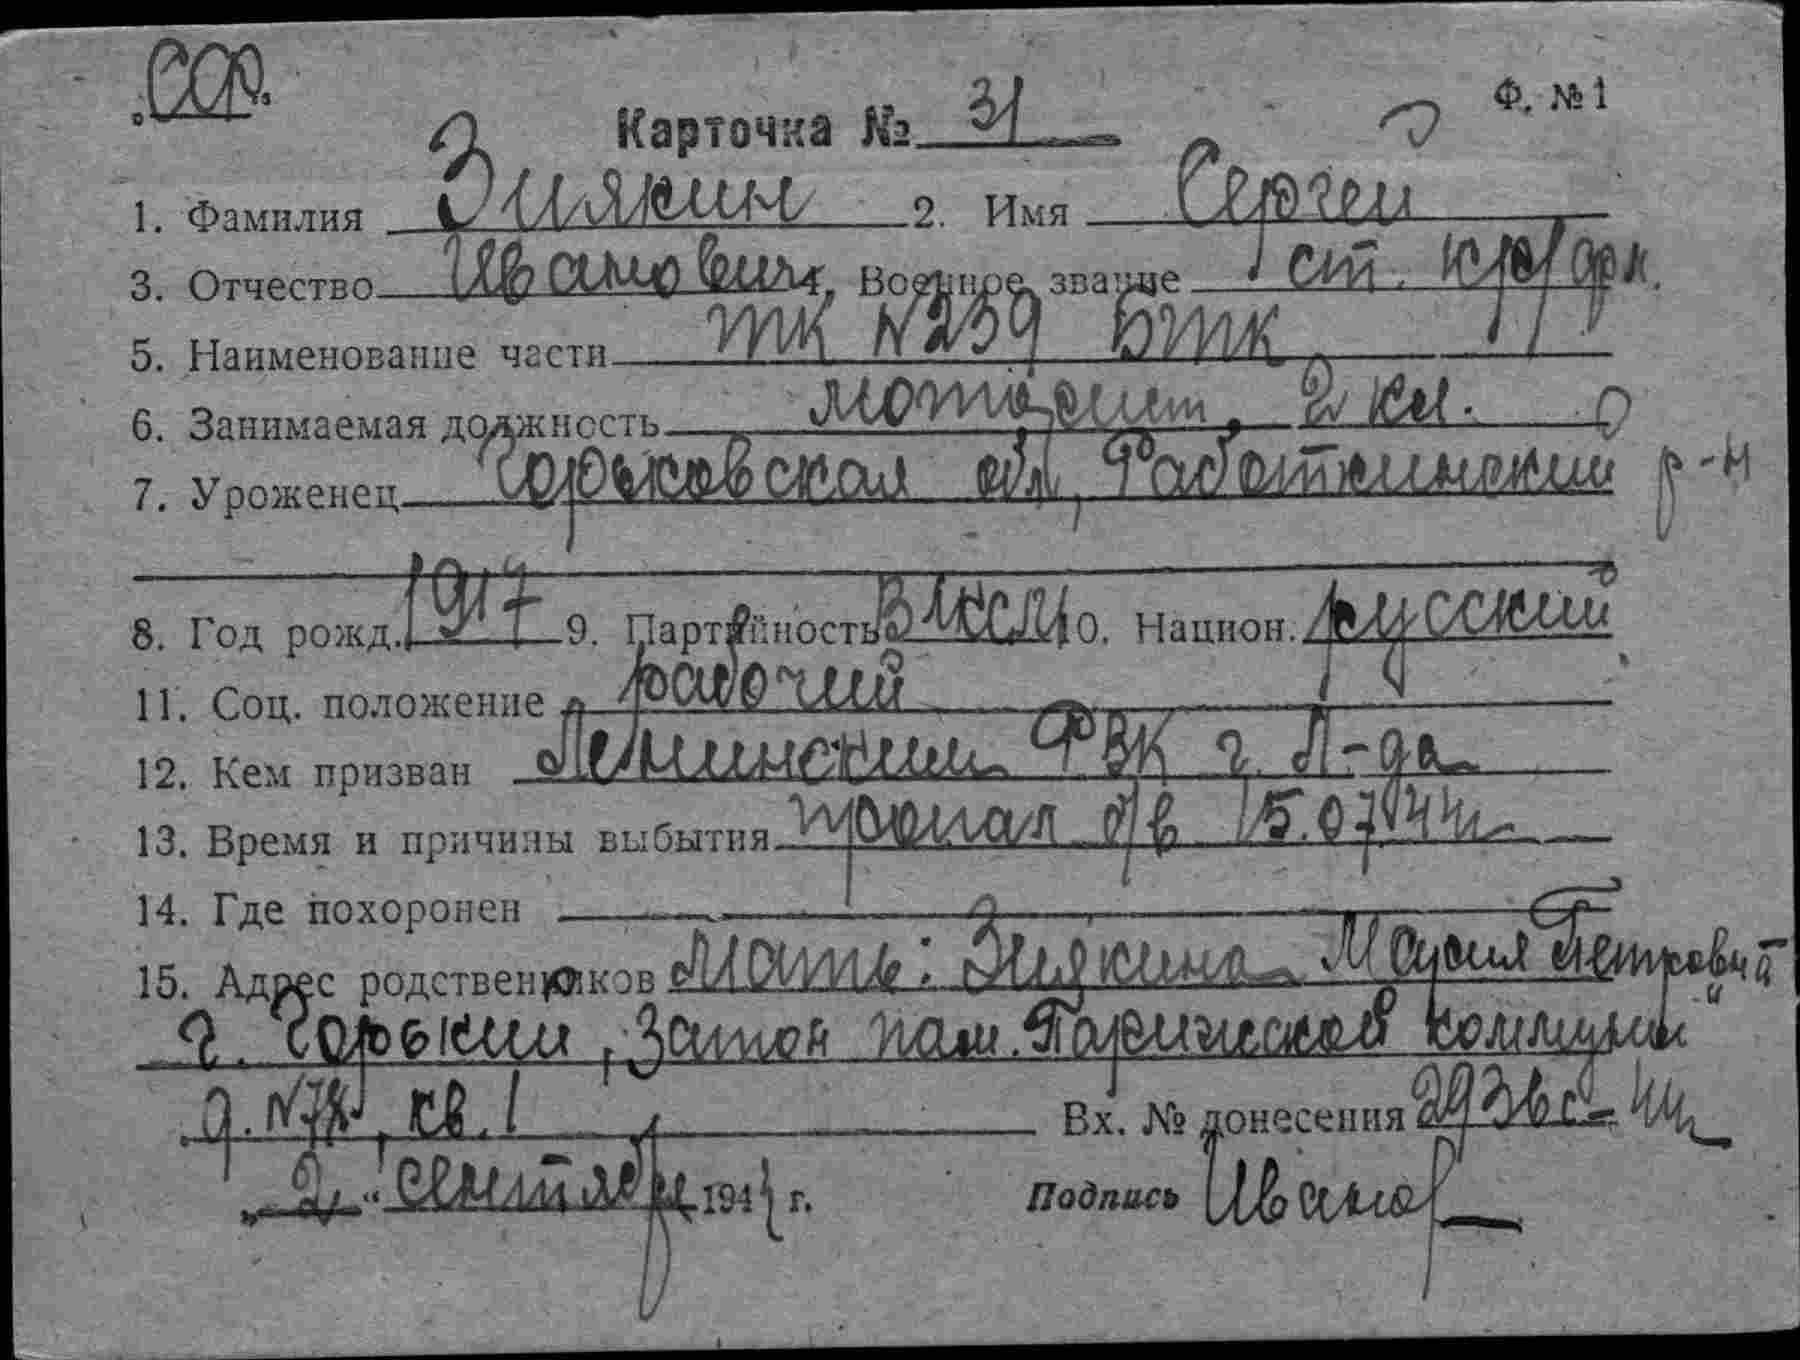 ССР.
Ф. №1
Карточка № 31
1. Фамилия Зиякин 2. Имя Сергей
3. Отчество Иванович 4. Военное звание ст. кр/фл.
5. Наименование части ТК №239 БТК
6. Занимаемая должность моторист, 2 кл.
7. Уроженец Горьковская обл, Работкинский р-н
8. Год рожд. 1917 9. Партийность ВЛКСМ 10. Национ. русский
11. Соц. положение рабочий
12. Кем призван Ленинским РВК г. Л-да
13. Время и причины выбытия пропал б/в 15.07.44г
14. Где похоронен
15. Адрес родственников Мать: Зиякина Мария Петровна
г. Горький, Затон пам. "Парижской коммуны"
д. кв. 1 Вх. № донесения 293вс-44г
"2" сентября 1944 г. Подпись Иванов